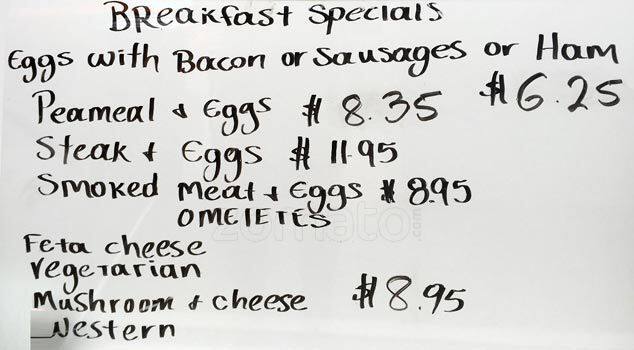 BREakfast Specials
Eggs with Bacon or Sausages or Ham
$6.25
Peameal & Eggs $8.35
Steak + Eggs $11.95
Smoked meat + Eggs $8.95
OMElETES
Feta cheese
vegetarian
Mushroom & cheese $8.95
Western
zomato.com